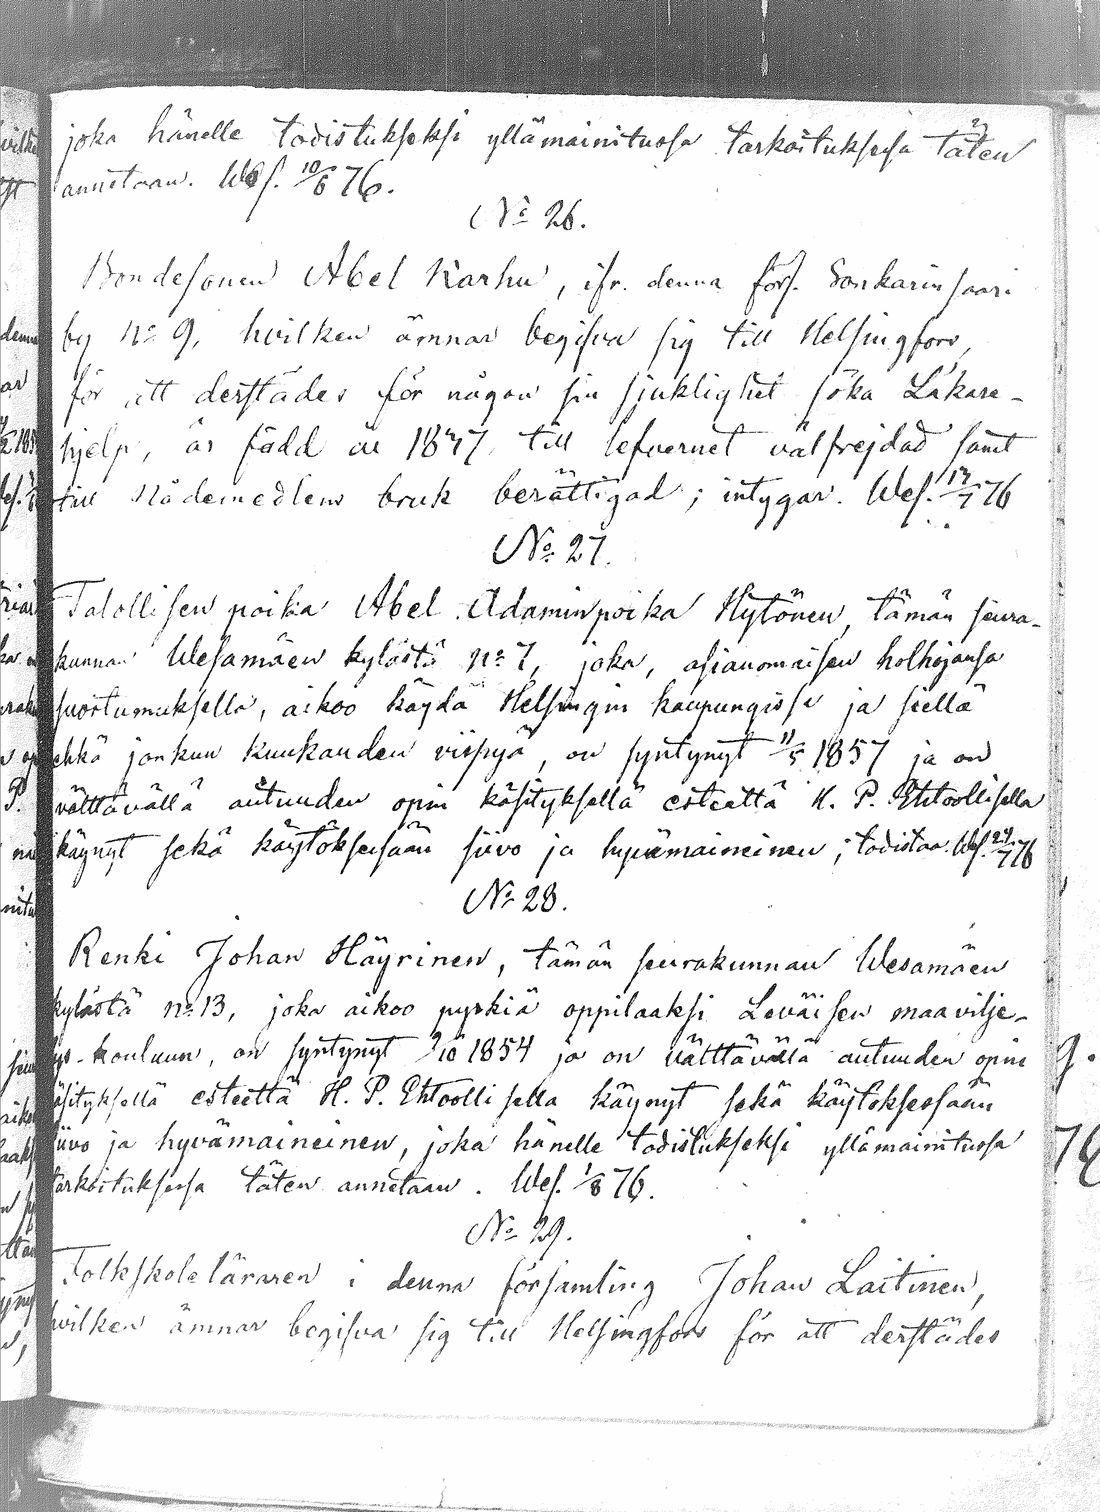 joka hänelle todistukseksi yllämainitussa tarkoituksessa täten
annetaan. Wes. 10/6 76.
No 26.
Bondesonen Abel Karhu, ifr. denna förs. Sonkarinsaari
by no 9, hvilken ämnar begifva sig till Helsingfors,
för att derstädes för någon sin sjuklighet söka Läkare-
hjelp, är född år 1847, till lefvernet välfrejdad samt
till Nådemedlens bruk berättigad; intygar. Wes. 17/7 76
No 27.
Talollisen poika Abel Adaminpoika Hytönen, tämän seura-
kunnan Wesamäen kylästä no 7, joka, asianomaisen holhojansa
suostumuksella, aikoo käydä Helsingin kaupungissa ja siellä
ehkä jonkun kuukauden viipyä, on syntynyt 11/5 1857 ja on
välttävällä autuuden opin käsityksellä esteettä H. P. Ehtoollisella
käynyt sekä käytöksessään siivo ja hyvämaineinen; todistaa. Wes. 24/7 76
No 28.
Renki Johan Häyrinen, tämän seurakunnan Wesamäen
kylästä no 13, joka aikoo pyrkiä oppilaaksi Leväisen maavilje-
lys-kouluun, on syntynyt 9/10 1854 ja on välttävällä autuuden opin
käsityksellä esteettä H. P. Ehtoollisella käynyt sekä käytöksessään
siivo ja hyvämaineinen, joka hänelle todistukseksi yllämainitussa
tarkoituksessa täten annetaan. Wes. 1/8 76.
No 29.
Folkskoleläraren i denna församling Johan Laitinen,
hvilken ämnar begifva sig till Helsingfors för att derstädes